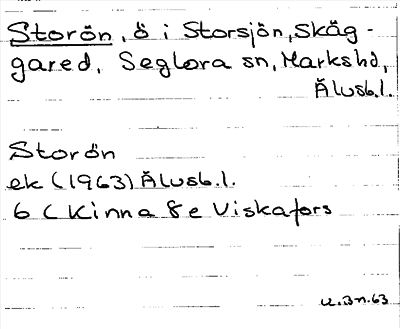 Storön, ö i Storsjön, Skäg-
gared, Seglora sn, Markshd,
Älvsb.l.
Storön
ek (1963) Älvsb.l.
6 C Kinna 8e Viskafors
u.Bn.63